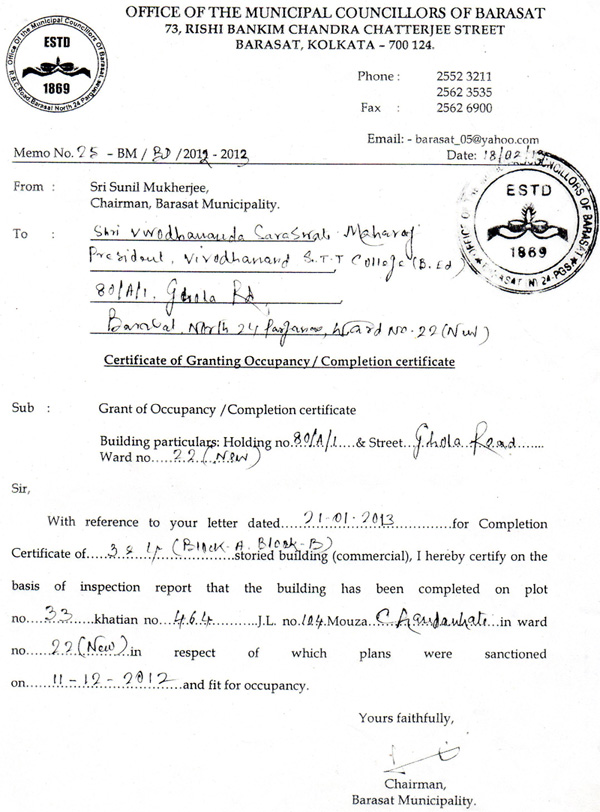 OFFICE OF THE MUNICIPAL COUNCILLORS OF BARASAT
73, RISHI BANKIM CHANDRA CHATTERJEE STREET
BARASAT, KOLKATA – 700 124.
Office Of the Municipal Councillors Of Barasat.
ESTD
1869
R.B.C.Road, Barasat North 24 Parganas
Phone : 2552 3211
2562 3535
Fax : 2562 6900
Email: - barasat_05@yahoo.com
Memo No. 25 - BM / BD /2012 - 2013
Date: 18/02/13
ESTD
1869
From : Sri Sunil Mukherjee,
Chairman, Barasat Municipality.
To : Shri Vivodhananda Saraswati Maharaj
President, Vivodhanand S.T.T College (B.Ed)
80/A/1, Ghola Rd,
Barasat, North 24 Parganas, Ward No. 22 (New)
Certificate of Granting Occupancy / Completion certificate
Sub : Grant of Occupancy /Completion certificate
Building particulars: Holding no.80/A/1....& Street...Ghola Road.......
Ward no.....22 (New)
Sir,
With reference to your letter dated....21-01-2013..............for Completion
Certificate of......3 & 4 (Block-A. Block-B)...storied building (commercial), I hereby certify on the
basis of inspection report that the building has been completed on plot
no...33.....khatian no...464..........J.L. no.104.Mouza..Chandanhati..in ward
no....22 (New).in respect of which plans were sanctioned
on.....11-12-2012......and fit for occupancy.
Yours faithfully,
Chairman,
Barasat Municipality.